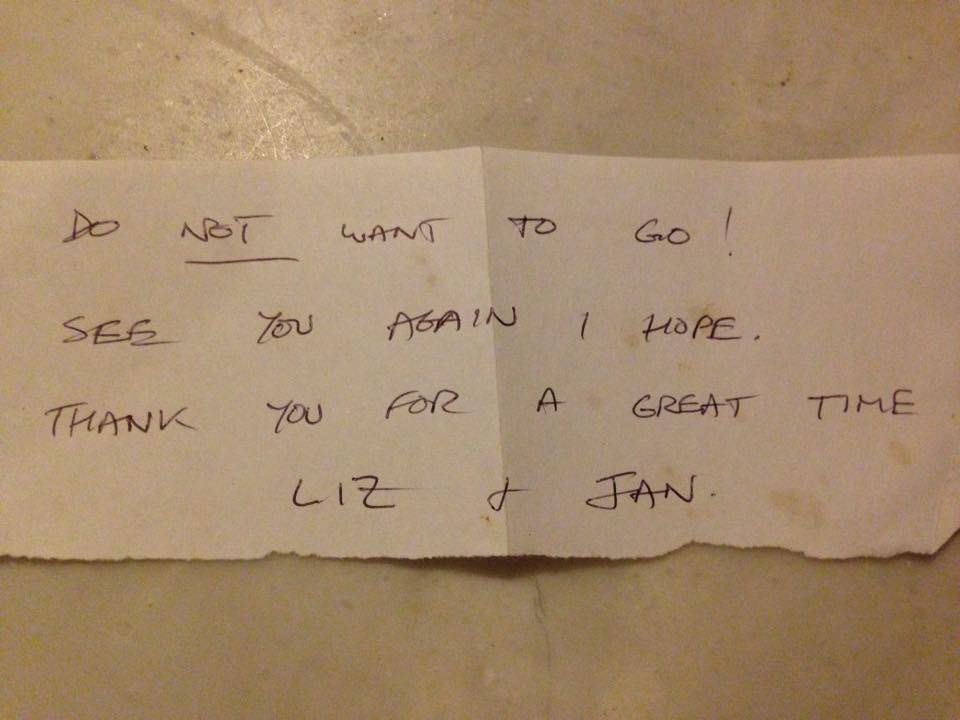 DO NOT WANT TO GO!
SEE YOU AGAIN I HOPE.
THANK YOU FOR A GREAT TIME
LIZ & JAN.